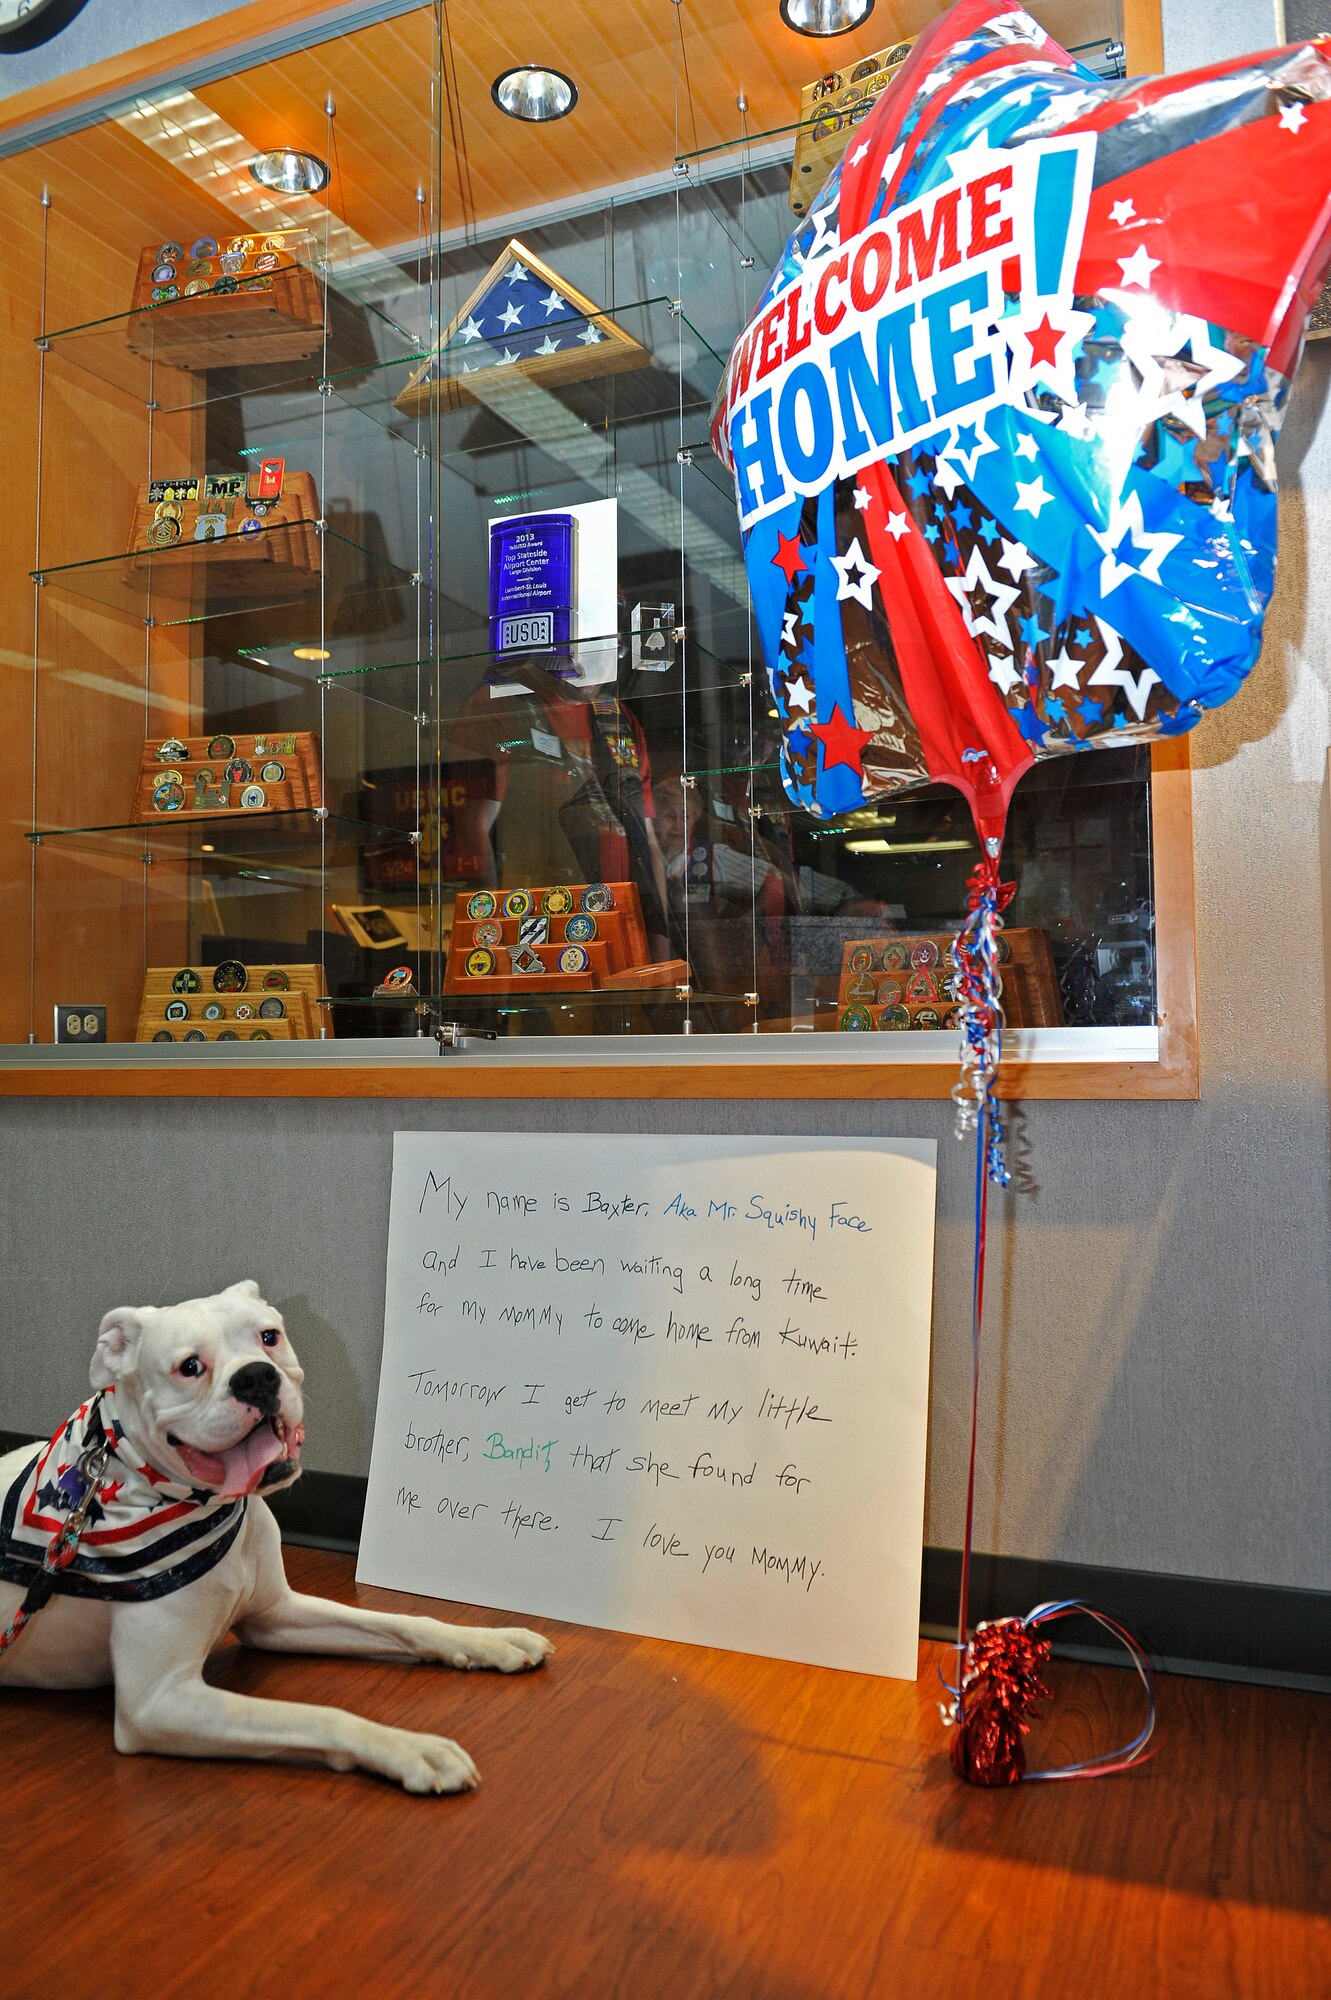 WELCOME
HOME!
MP
2013
TellUSO Award
Top Stateside
Airport Center
Large Division
Presented to
Lambert-St. Louis
International Airport
USO
USMC
3/24
1-1
My name is Baxter, Aka Mr. Squishy Face
and I have been waiting a long time
for my mommy to come home from Kuwait.
Tomorrow I get to meet my little
brother, Bandit, that she found for
me over there. I love you mommy.